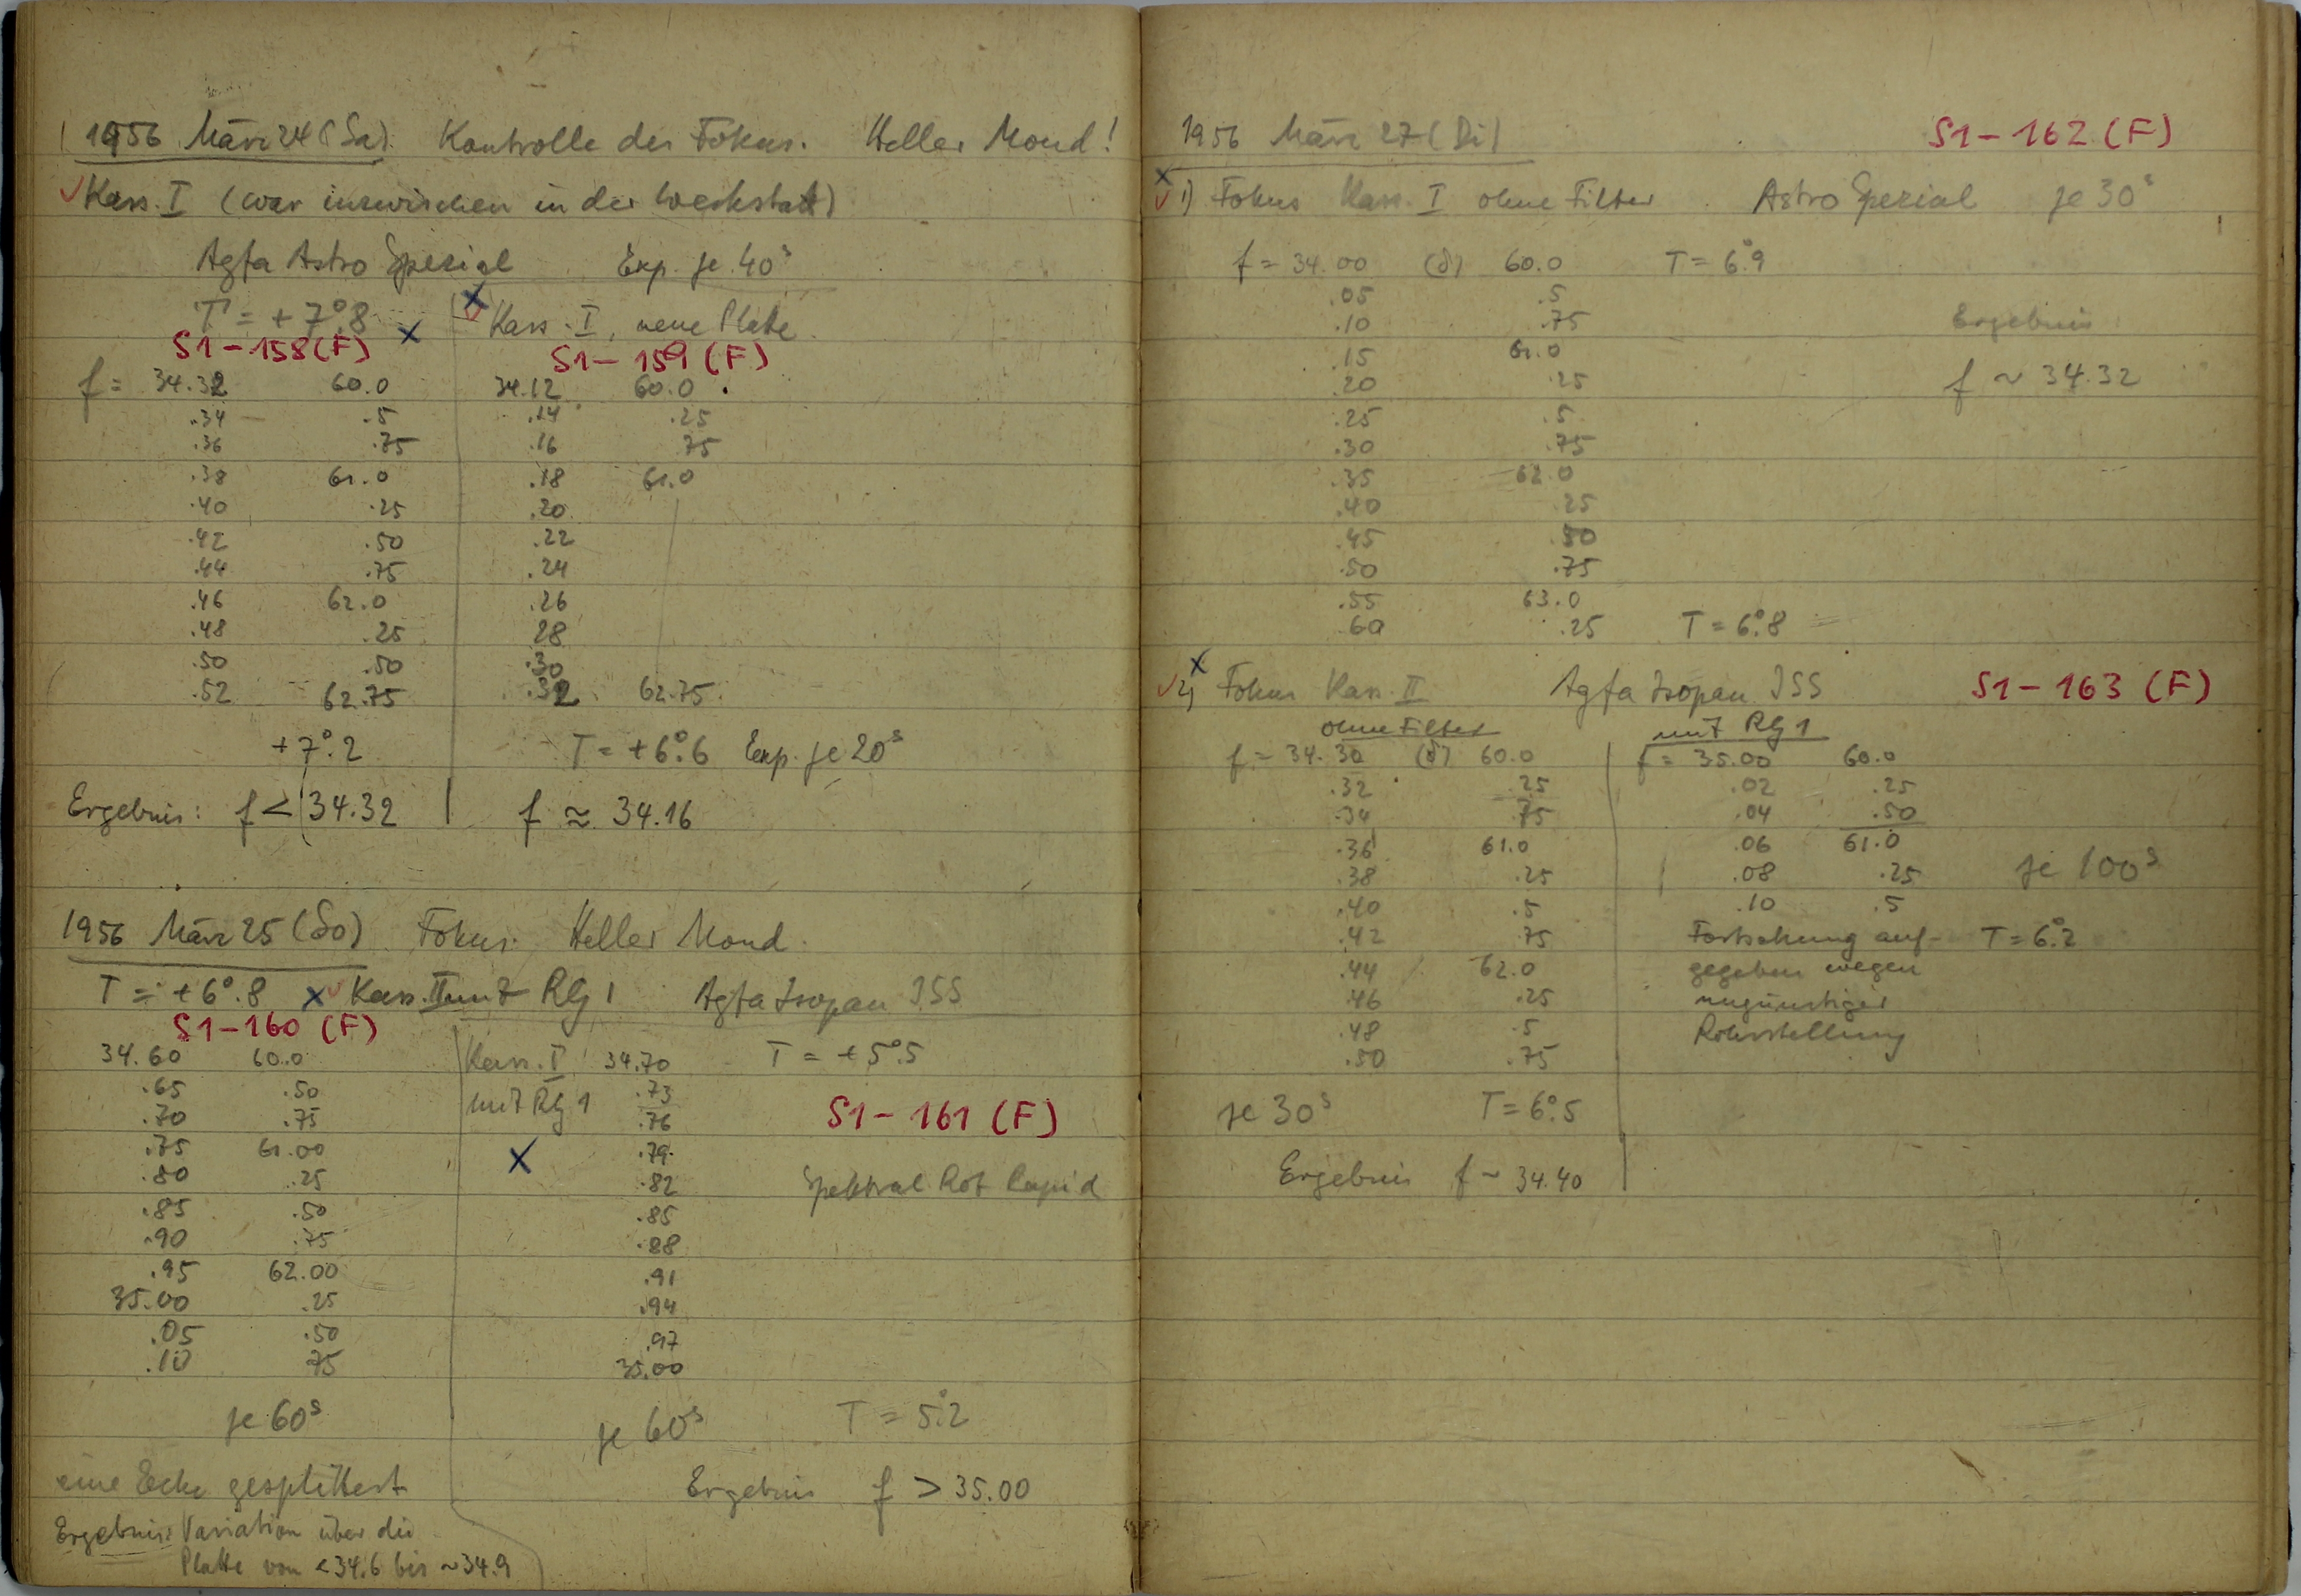 1956 März 24 (Sa). Kontrolle des Fokus. Heller Mond!
Kass. I (war inzwischen in der Werkstatt)
Agfa Astro Spezial Exp. je 40ˢ
T = +7°.8
S1-158(F)
f = 34.32 60.0
.34 .5
.36 .75
.38 61.0
.40 .25
.42 .50
.44 .75
.46 62.0
.48 .25
.50 .50
.52 62.75
+7°.2
Ergebnis: f < 34.32
Kass. I, neue Platte
S1-159 (F)
34.12 60.0
.14 .25
.16 75
.18 61.0
.20
.22
.24
.26
28
.30
.32 62.75
T = +6°.6 Exp. je 20ˢ
f ≈ 34.16
1956 März 25 (So) Fokus. Heller Mond.
T = +6°.8 Kass. II mit RG 1 Agfa Isopan ISS
S1-160 (F)
34.60 60.0
.65 .50
.70 .75
.75 61.00
.80 .25
.85 .50
.90 .75
.95 62.00
35.00 .25
.05 .50
.10 75
je 60ˢ
eine Ecke gesplittert
Ergebnis: Variation über die
Platte von <34.6 bis ~34.9
Kass. I 34.70 T = +5°.5
mit RG 1 .73
.76
S1-161 (F)
.79
.82 Spektral Rot Rapid
.85
.88
.91
.94
.97
35.00
je 60ˢ T = 5°.2
Ergebnis f > 35.00
1956 März 27 (Di) S1-162 (F)
1) Fokus Kass. I ohne Filter Astro Spezial je 30ˢ
f = 34.00 (δ) 60.0 T = 6°.9
.05 .5
.10 .75
.15 61.0
.20 .25
.25 .5
.30 .75
.35 62.0
.40 .25
.45 .50
.50 .75
.55 63.0
.60 .25 T = 6°.8
Ergebnis
f ~ 34.32
2) Fokus Kass. II Agfa Isopan ISS S1-163 (F)
ohne Filter
f = 34.30 (δ) 60.0
.32 .25
.34 .75
.36 61.0
.38 .25
.40 .5
.42 .75
.44 62.0
.46 .25
.48 .5
.50 .75
je 30ˢ T = 6°.5
Ergebnis f ~ 34.40
mit RG 1
f = 35.00 60.0
.02 .25
.04 .50
.06 61.0
.08 .25 je 100ˢ
.10 .5
Fortsetzung auf- T = 6°.2
gegeben wegen
ungünstiger
Rohrstellung